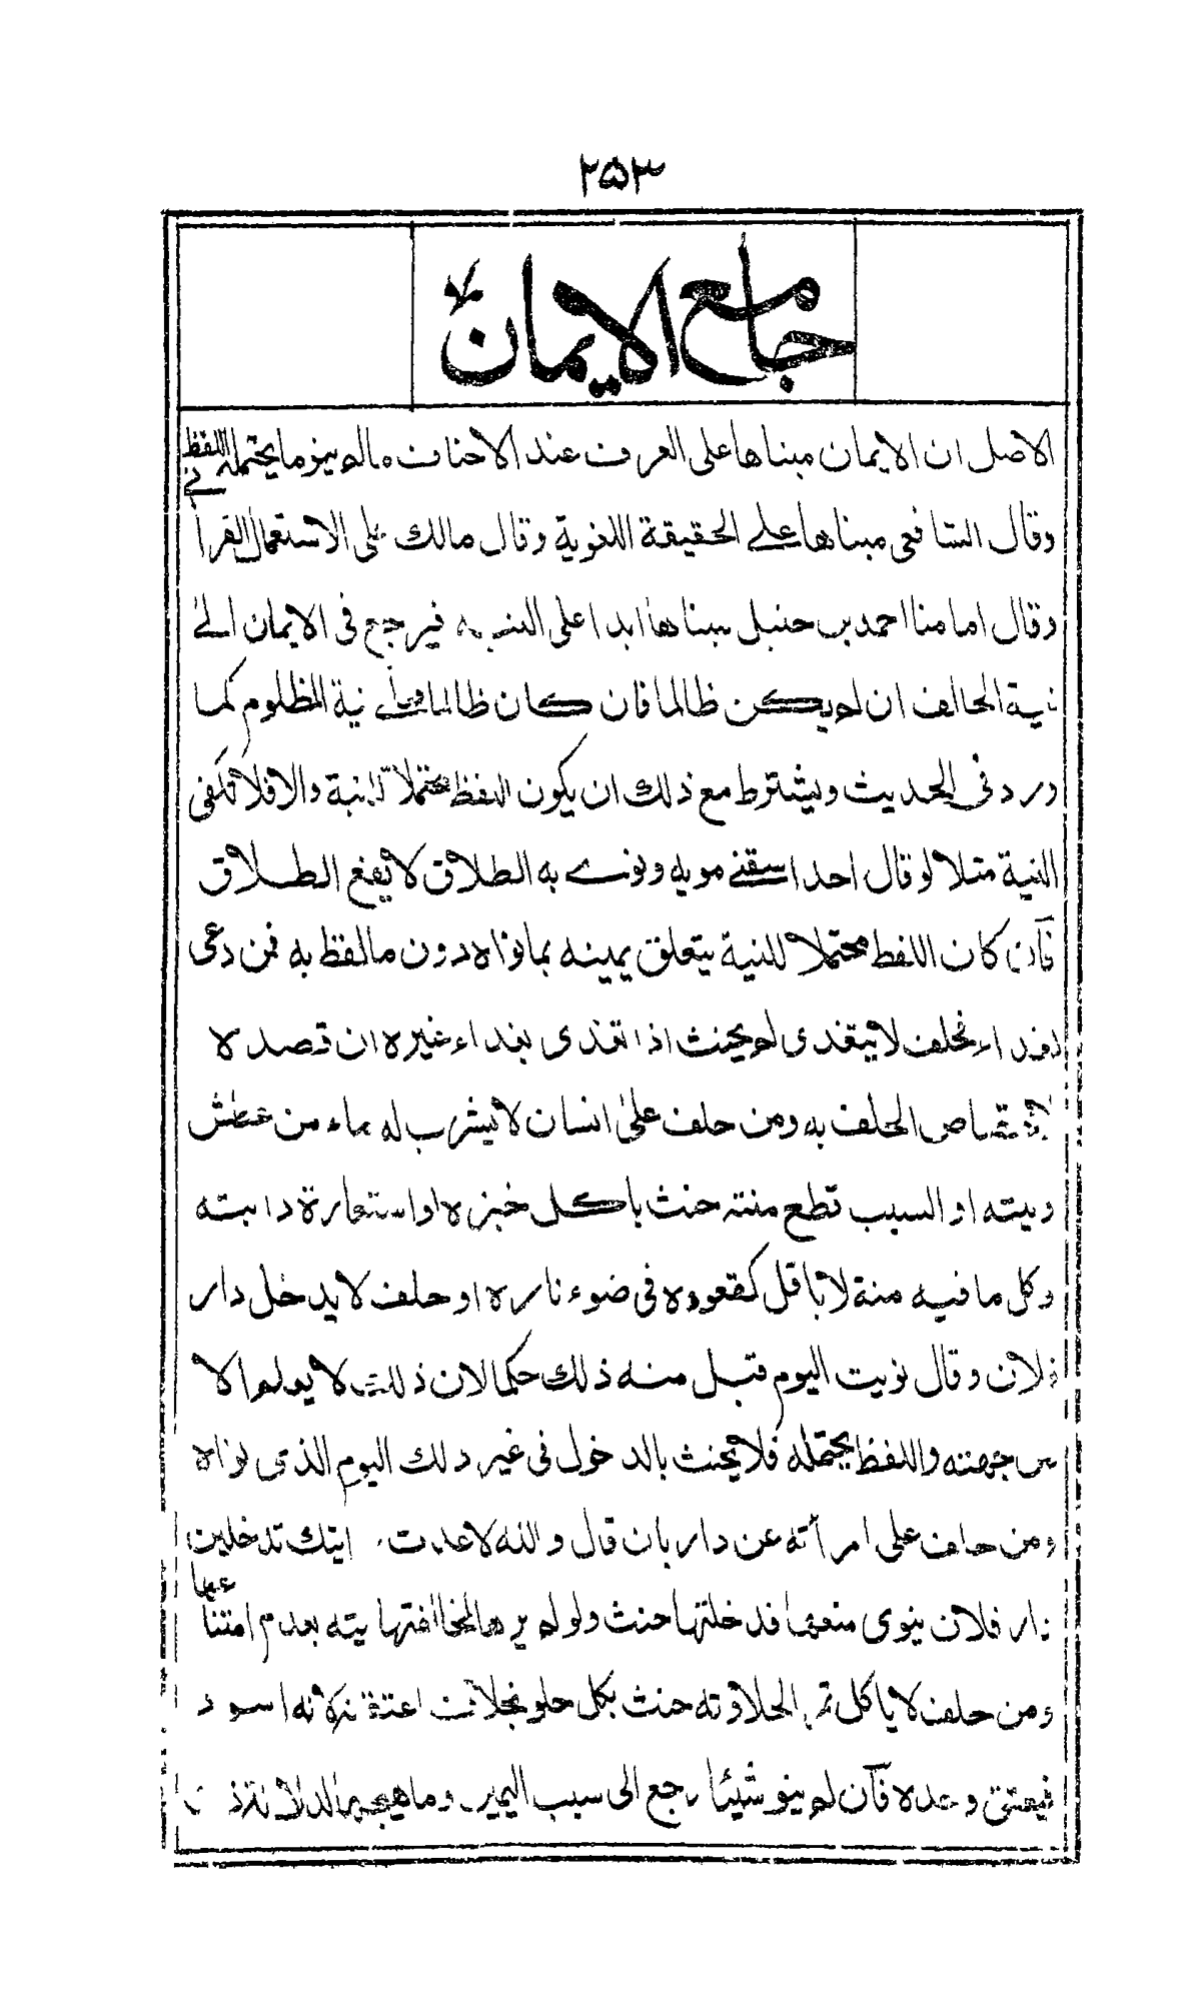 ٢٥٣
جامع الايمان
الاصل ان الايمان مبناها على العرف عند الاحناف مالم ينو ما يحتمله اللفظ
وقال الشافعي مبناها على الحقيقة اللغوية وقال مالك على الاستعمال القرآني
وقال امامنا احمد بن حنبل مبناها ابدا على النية فيرجع فى الايمان الى
نية الحالف ان لم يكن ظالما فان كان ظالما فعلى نية المظلوم كما
ورد فى الحديث ويشترط مع ذلك ان يكون اللفظ محتملا للنية والا فلا تكفى
النية مثلا لو قال احد اسقنى مويه ونوى به الطلاق لا يقع الطلاق
فان كان اللفظ محتملا للنية يتعلق يمينه بما نواه دون مالفظ به فمن دعى
لغداء فحلف لا يتغدى لم يحنث اذا تغدى بغداء غيره ان قصده
لاختصاص الحلف به ومن حلف على انسان لا يشرب له ماء من عطش
ونيته او السبب قطع منته حنث باكل خبزه او استعارة دابته
وكل ما فيه منة لا باقل كقعوده فى ضوء ناره او حلف لا يدخل دار
فلان وقال نويت اليوم قبل منه ذلك حكما لان ذلك لا يعلم الا
من جهته واللفظ يحتمله فلا يحنث بالدخول فى غير ذلك اليوم الذى نواه
ومن حلف على امرأته عن دار بان قال والله لا عدت ايتك تدخلين
دار فلان ينوى منعها فدخلتها حنث ولو لم يرها لمخالفتها نيته بعدم امتناعها
ومن حلف لا ياكل تمرا لحلاوته حنث بكل حلو بخلاف اعتقته لانه اسود
فيعتق وحده فان لم ينو شيئا رجع الى سبب اليمين وما هيجها